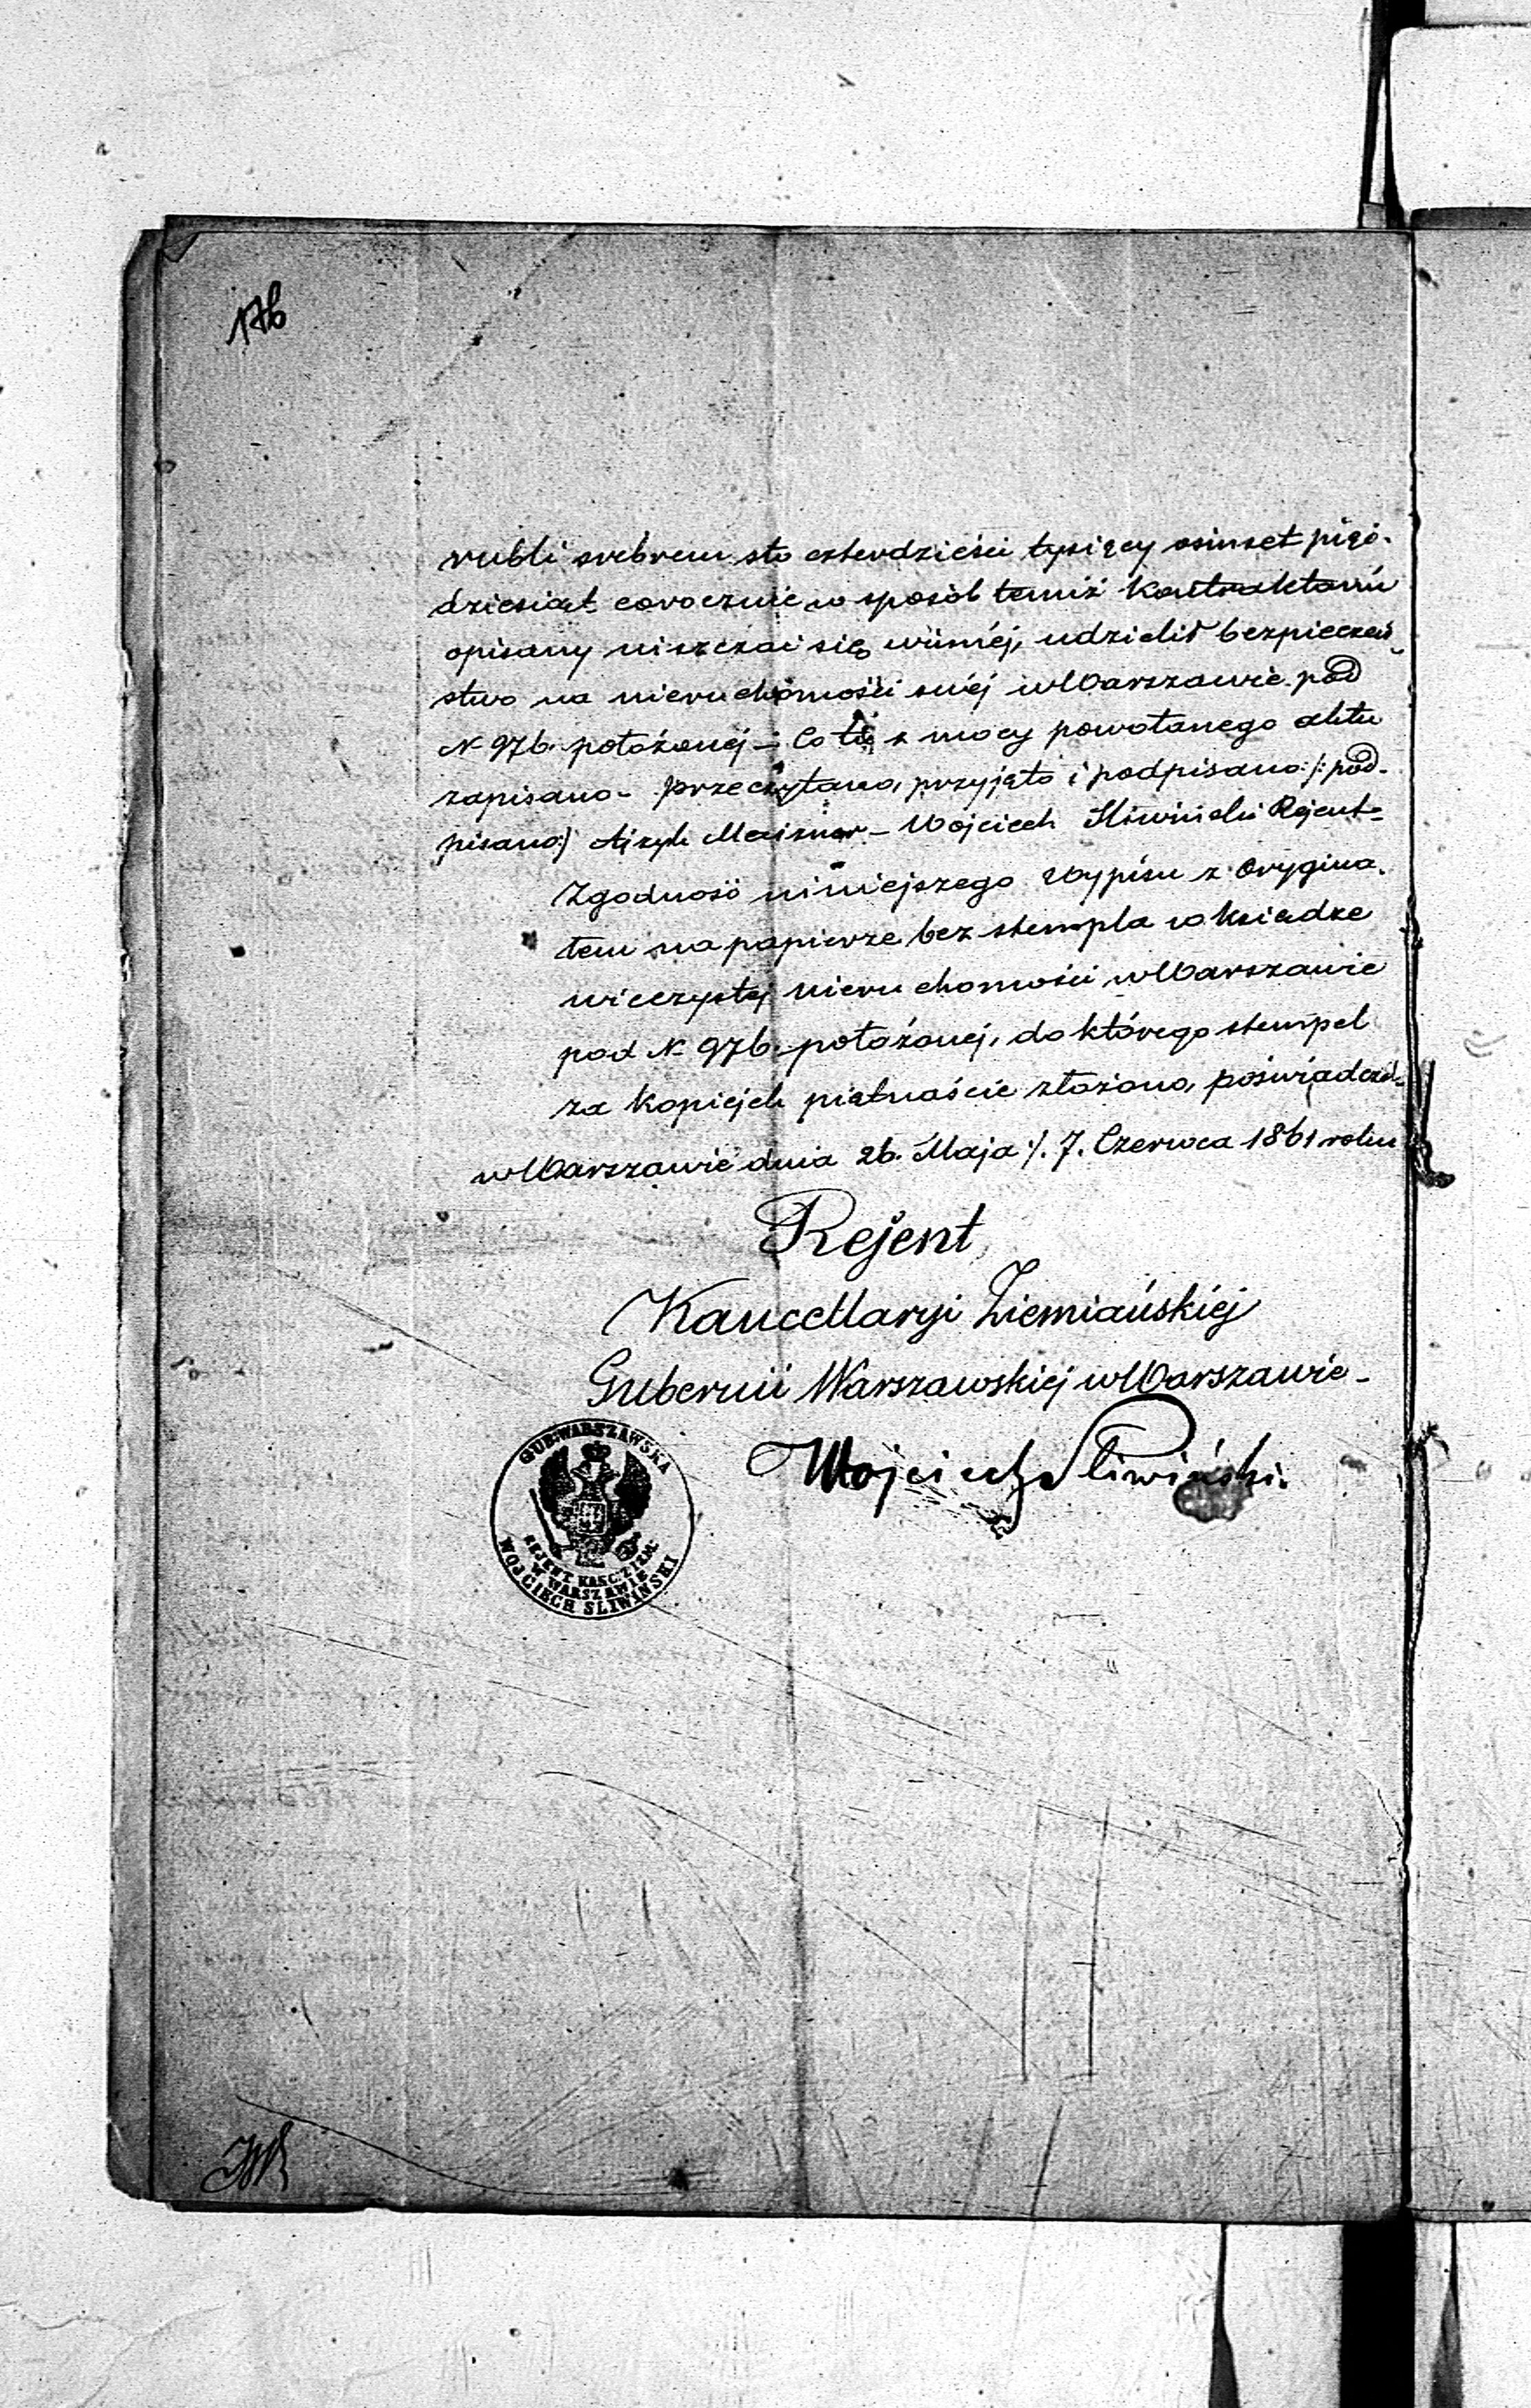 176
rubli srebrem sto czterdzieści tysięcy osimset pięć-
dziesiąt corocznie w sposób temiż Kontraktami
opisany uiszczać się winnéj, udzielił bezpieczeń-
stwo na nieruchomości swéj w Warszawie pod
N 976. położonej — Co tu z mocy powołanego aktu
zapisano - przeczytano, przyjęto i podpisano /: pod-
pisano:/ Ajzyk Maizner — Wojciech Sliwiński Rejent -
Zgodność niniejszego Wypisu z Orygina-
łem na papierze bez stempla w Księdze
wieczystej Nieruchomości w Warszawie
pod N 976. położonéj, do którego stempel
za Kopiejek piętnaście złożono, poświadcza
w Warszawie dnia 26. Maja /. 7. Czerwca 1861 roku
Rejent
Kancellaryi Ziemiańskiéj
Gubernii Warszawskiej w Warszawie -
Wojciech Śliwiński.
GUB: WARSZAWSKA
REJENT KANC: ZIEM:
W WARSZAWIE
WOJCIECH SLIWIŃSKI